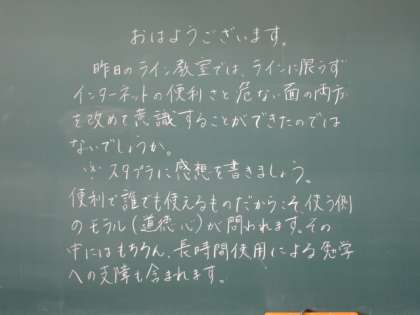 おはようございます。
昨日のライン教室では、ラインに限らず
インターネットの便利さと危ない面の両方
を改めて意識することができたのでは
ないでしょうか。
※スタプラに感想を書きましょう。
便利で誰でも使えるものだからこそ、使う側
のモラル(道徳心)が問われます。その
中にはもちろん、長時間使用による勉学
への支障も含まれます。